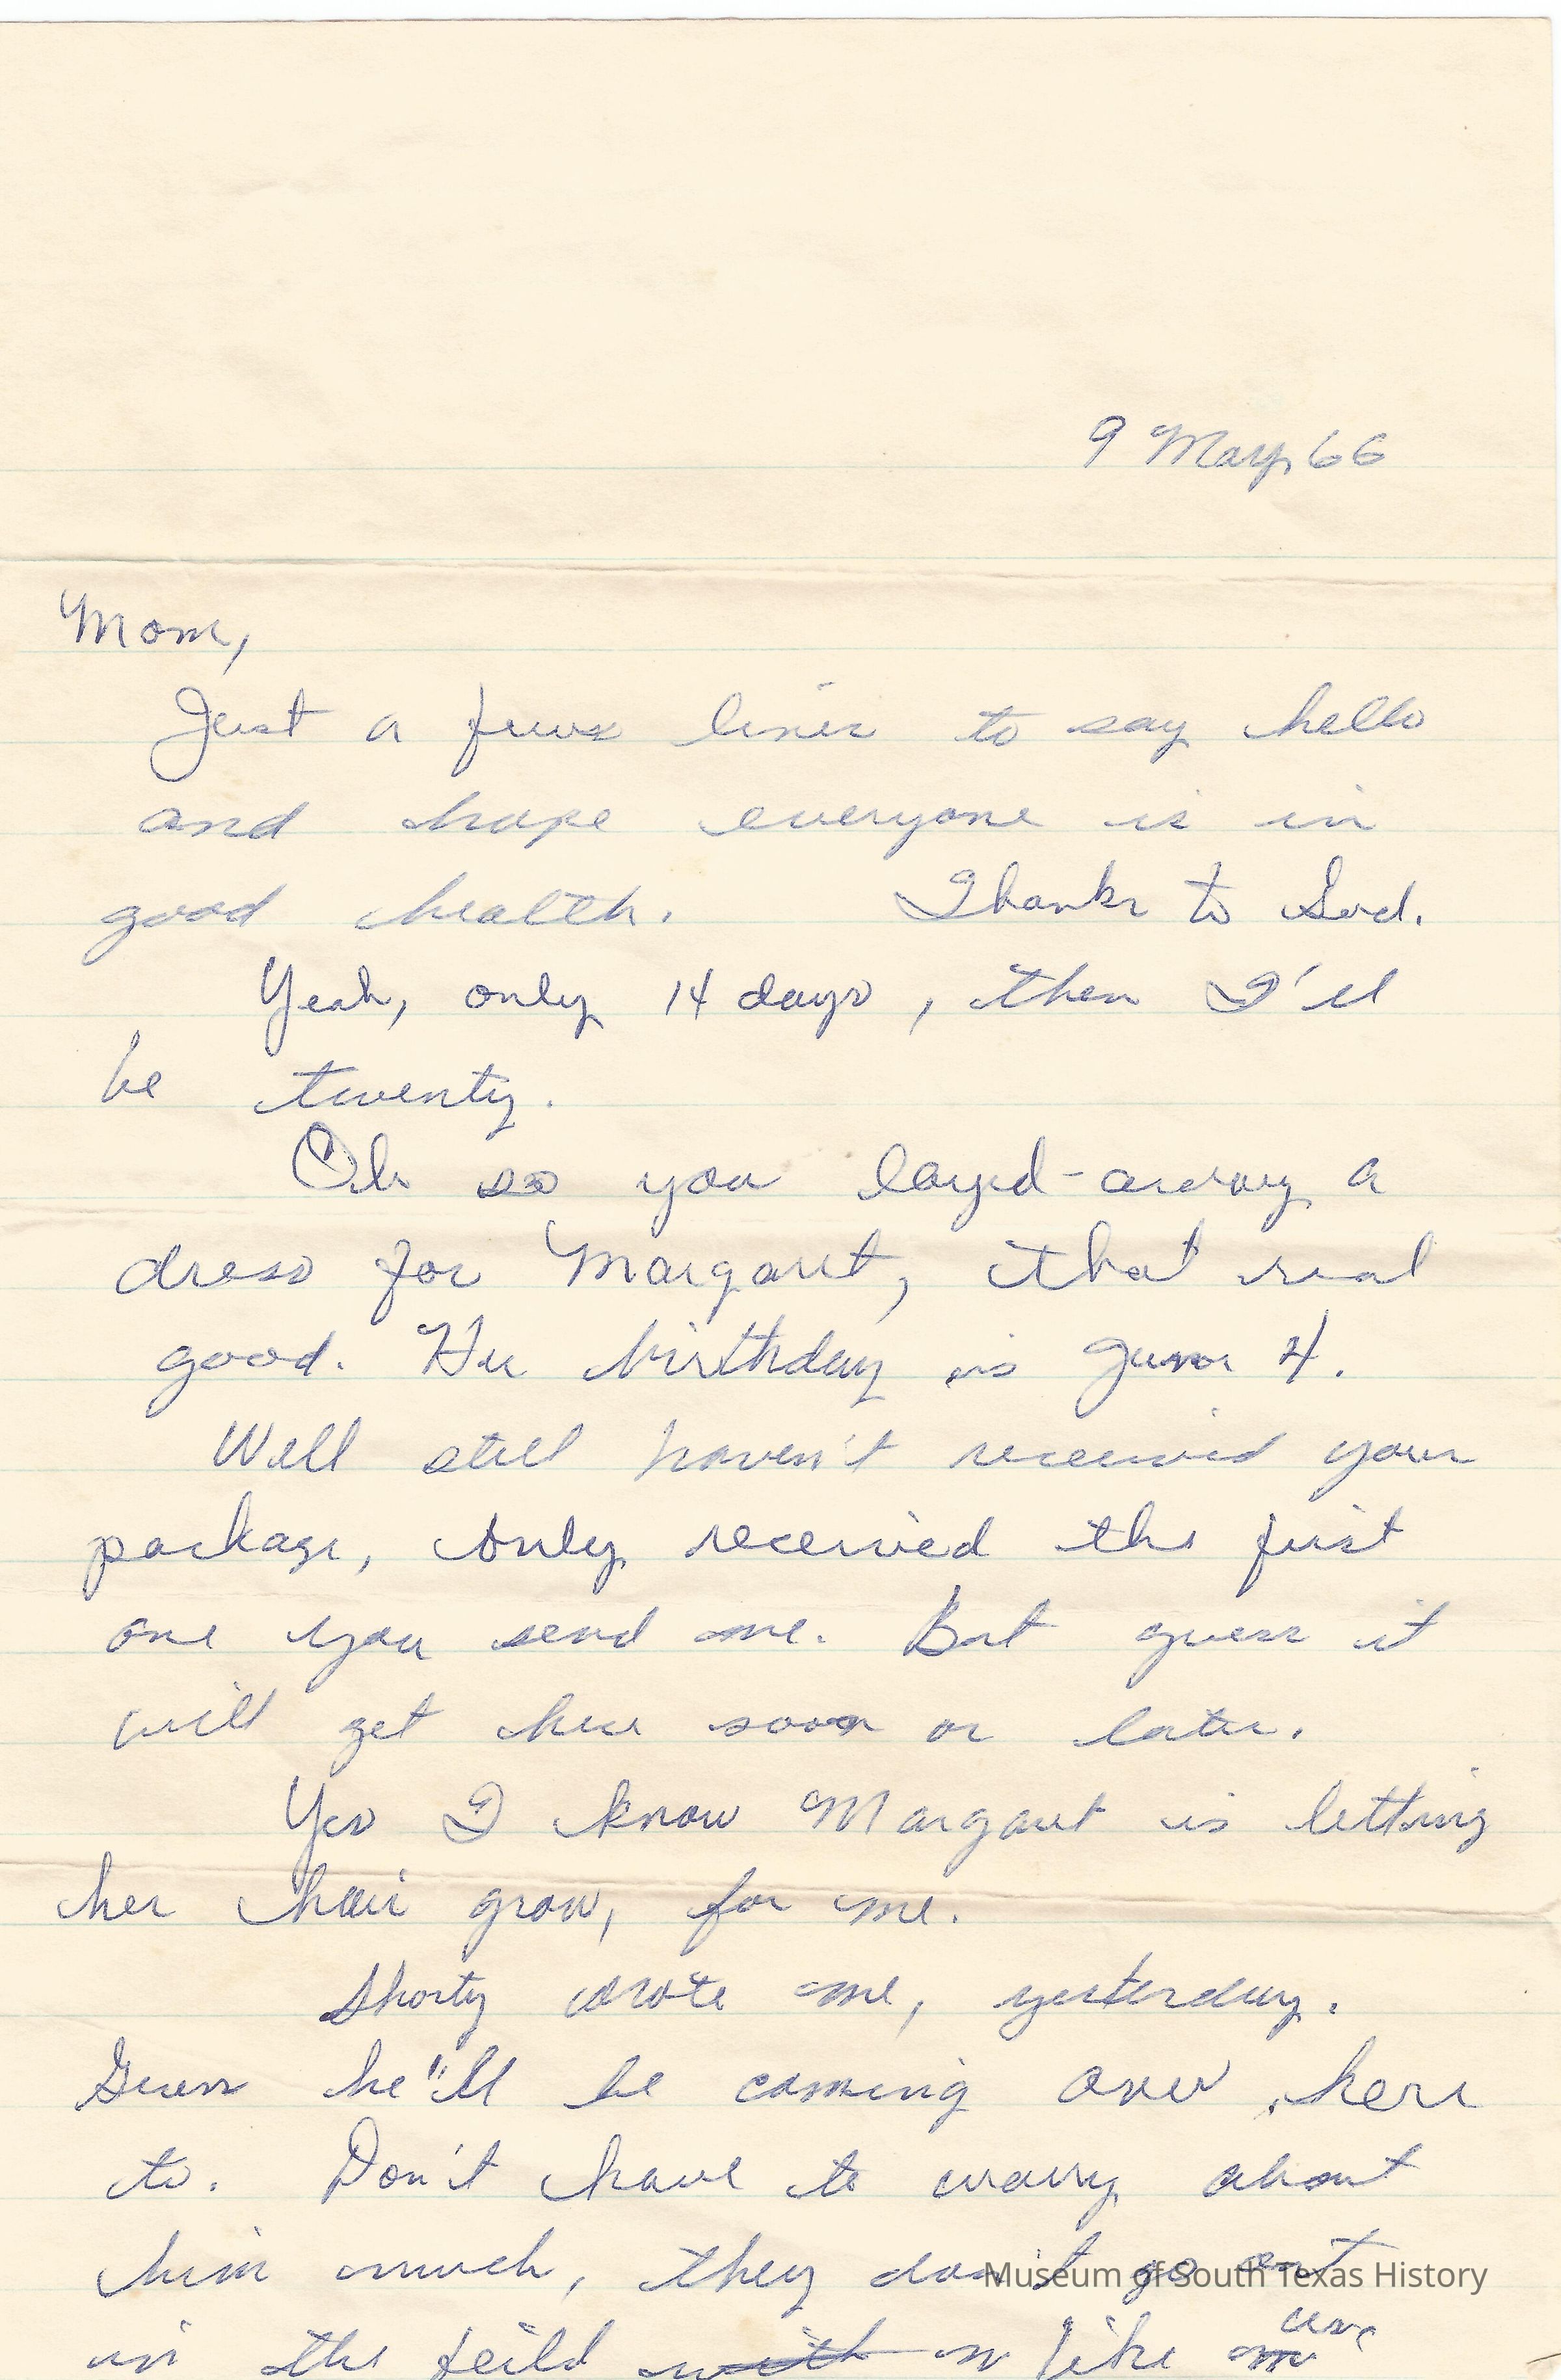 9 May, 66
Mom,
Just a few lines to say hello
and hope everyone is in
good health. Thanks to God.
Yeah, only 14 days, then I'll
be twenty.
Oh so you layed-away a
dress for Margaret, that real
good. Her birthday is June 4.
Well still haven't received your
package, only received the first
one you send me. But guess it
will get here soon or later.
Yes I know Margaret is letting
her hair grow, for me.
Shorty wrote me, yesterday.
Guess he'll be coming over here
to. Don't have to worry about
him much, they don't go out
in the feild like us
Museum of South Texas History